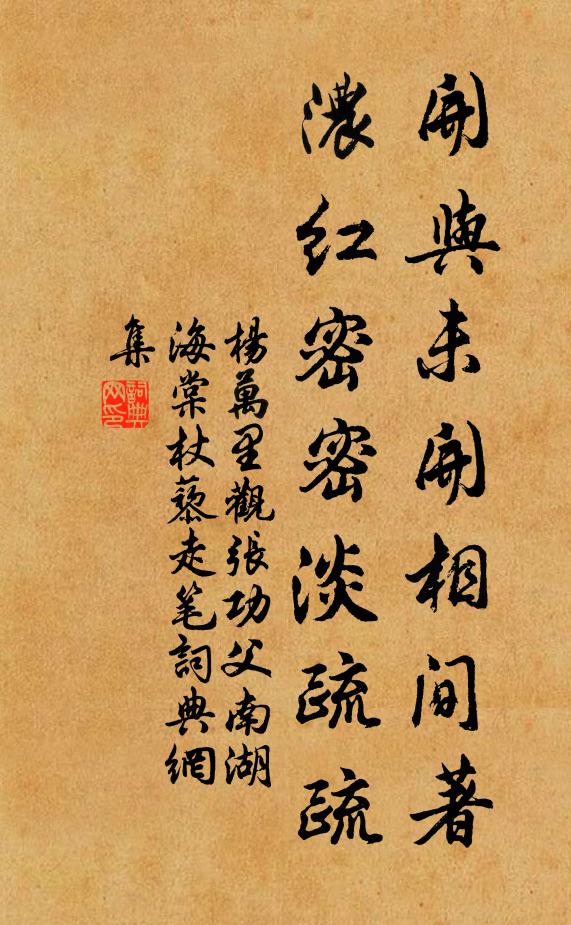 開與未開相間著
濃紅密密淡疏疏
楊萬里觀張功父南湖
海棠杖藜走笔詞典網
集
詞典
网印